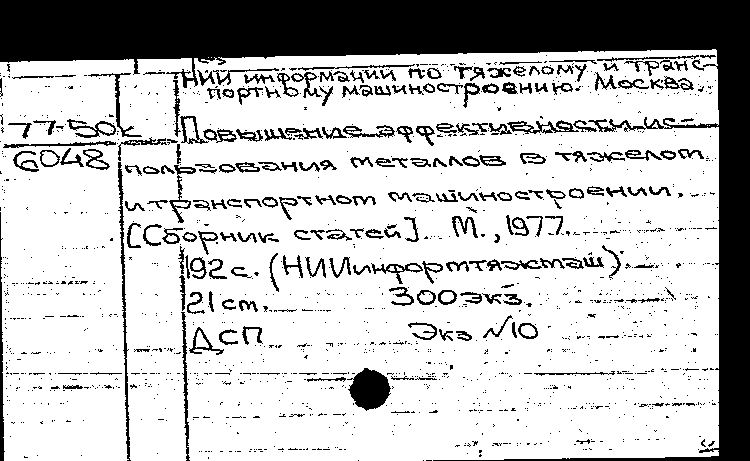 НИИ информации по тяжелому и транс-
портному машиностроению. Москва.
77-50к
Повышение эффективности ис-
6048
пользования металлов в тяжелом
и транспортном машиностроении.
[Сборник статей]. М., 1977.
192 с. (НИИинформтяжмаш).
21 см. 300 экз.
ДСП Экз №10